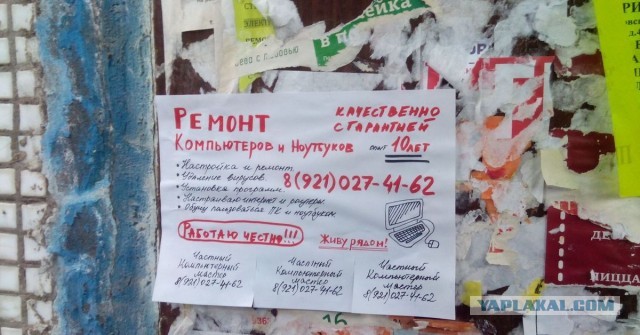 РЕМОНТ
Компьютеров и Ноутбуков
КАЧЕСТВЕННО
С ГАРАНТИЕЙ
опыт 10 ЛЕТ
• Настройка и ремонт
• Удаление вирусов
• Установка программ
• Настраиваю интернет и роутеры
• Обучу пользоваться ПК и ноутбуком
8(921)027-41-62
РАБОТАЮ ЧЕСТНО!!!
ЖИВУ РЯДОМ!
Частный
Компьютерный
мастер
8(921)027-41-62
Частный
Компьютерный
мастер
8(921)027-41-62
Частный
Компьютерный
мастер
8(921)027-41-62
ПИЦЦА
16
YAPLAKAL.COM